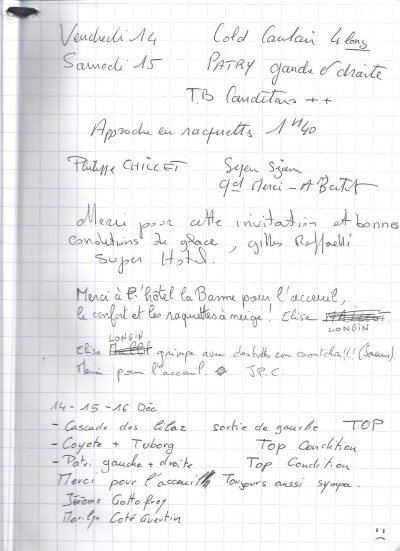 Vendredi 14 Cold Couloir 4 long
Samedi 15 PATRY gauche et droite
TB Conditions ++
Approche en raquettes 1H40
Philippe
Merci
Merci pour cette invitation et bonnes
conditions de glace, gilles Raffaelli
Super Hotel.
Merci à l'hôtel la Barme pour l'accueil,
le confort et les raquettes à neige! Elise
LONGIN
LONGIN
Elise grimpe avec des bottes en caoutchou!!!
Merci pour l'accueil J.P.C.
14-15-16 Déc
- Cascade des Lilaz sortie de gauche TOP
- Coyote + Tuborg Top Condition
- Patri gauche + droite Top Condition
Merci pour l'accueil Toujours aussi sympa.
Jérôme Gottofrey
Marilyn Coté Guertin